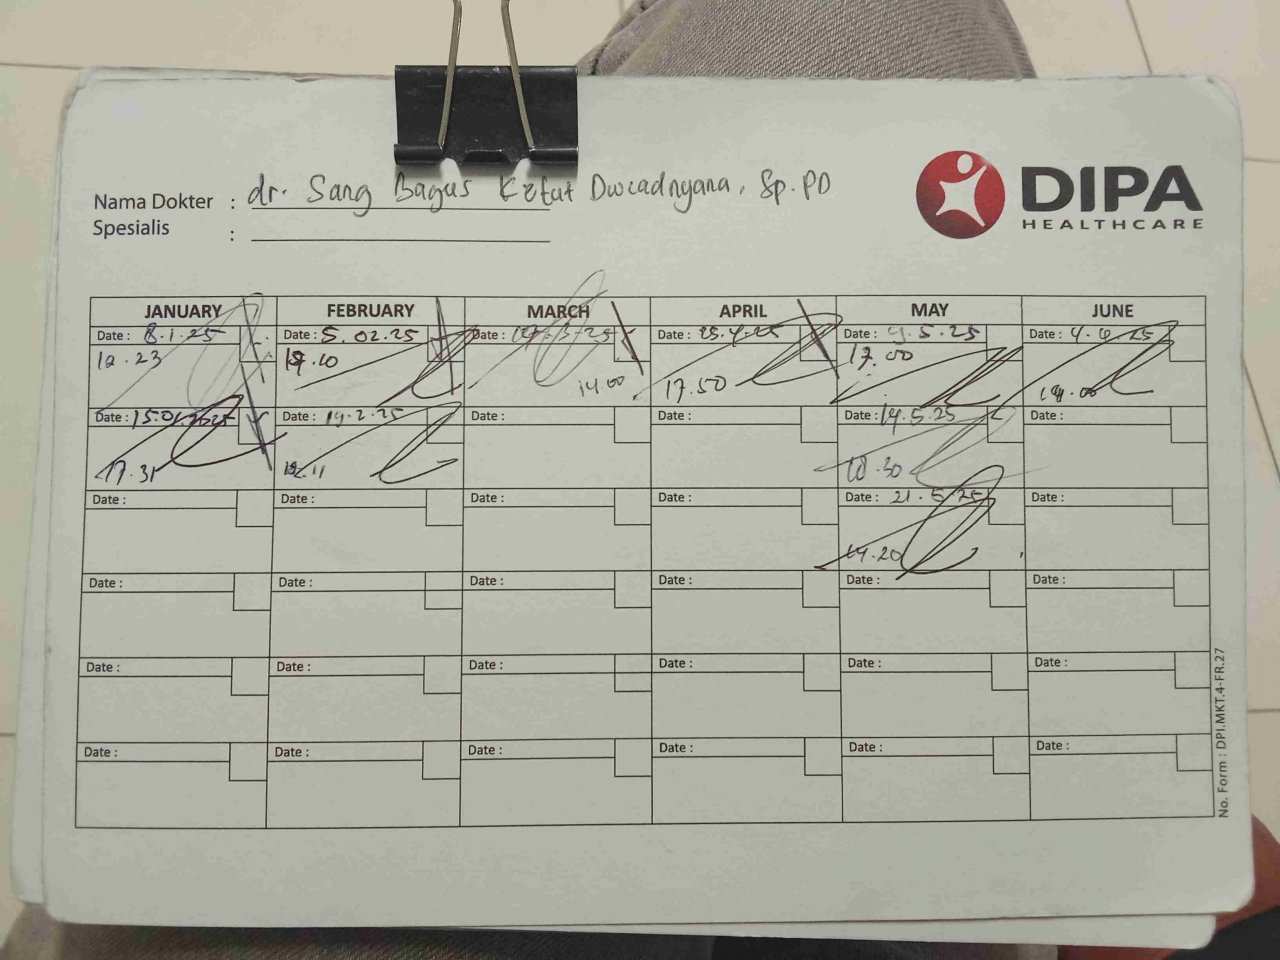 DIPA
HEALTHCARE
Nama Dokter : dr. Sang Bagus Ketut Dwiadnyana, Sp.PD
Spesialis :
JANUARY FEBRUARY MARCH APRIL MAY JUNE
Date : 8.1.25 Date : 5.02.25 Date : Date : 25.4.25 Date : 5.25 Date : 4.6.25
12.23 17.00
14.00 17.50
Date : 15.01.2025 Date : 19.2.25 Date : Date : Date : 14.5.25 Date :
17.31 18.30
Date : Date : Date : Date : Date : 21.5.25 Date :
14.20
Date : Date : Date : Date : Date : Date :
Date : Date : Date : Date : Date : Date :
Date : Date : Date : Date : Date : Date :
No. Form : DPI.MKT.4-FR.27